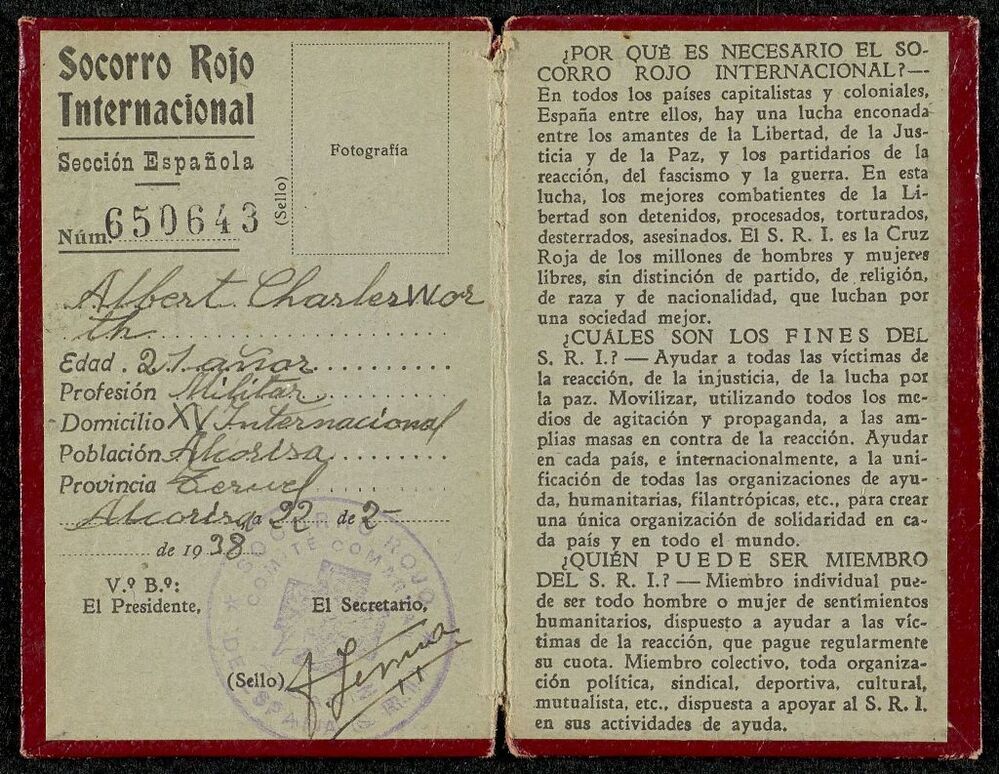 Socorro Rojo
Internacional
Sección Española
Núm. 650643
(Sello)
Fotografía
Albert Charleswor
th
Edad. 21 años
Profesión Militar
Domicilio XV Internacional
Población Alcorisa
Provincia Teruel
Alcorisa a 22 de 2-
de 1938
V.º B.º:
El Presidente,
El Secretario,
(Sello)
SOCORRO ROJO
COMITÉ
DE ESPAÑA
¿POR QUÉ ES NECESARIO EL SO-
CORRO ROJO INTERNACIONAL?—
En todos los países capitalistas y coloniales,
España entre ellos, hay una lucha enconada
entre los amantes de la Libertad, de la Jus-
ticia y de la Paz, y los partidarios de la
reacción, del fascismo y la guerra. En esta
lucha, los mejores combatientes de la Li-
bertad son detenidos, procesados, torturados,
desterrados, asesinados. El S. R. I. es la Cruz
Roja de los millones de hombres y mujeres
libres, sin distinción de partido, de religión,
de raza y de nacionalidad, que luchan por
una sociedad mejor.
¿CUÁLES SON LOS FINES DEL
S. R. I.? — Ayudar a todas las víctimas de
la reacción, de la injusticia, de la lucha por
la paz. Movilizar, utilizando todos los me-
dios de agitación y propaganda, a las am-
plias masas en contra de la reacción. Ayudar
en cada país, e internacionalmente, a la uni-
ficación de todas las organizaciones de ayu-
da, humanitarias, filantrópicas, etc., para crear
una única organización de solidaridad en ca-
da país y en todo el mundo.
¿QUIÉN PUEDE SER MIEMBRO
DEL S. R. I.? — Miembro individual pue-
de ser todo hombre o mujer de sentimientos
humanitarios, dispuesto a ayudar a las víc-
timas de la reacción, que pague regularmente
su cuota. Miembro colectivo, toda organiza-
ción política, sindical, deportiva, cultural,
mutualista, etc., dispuesta a apoyar al S. R. I.
en sus actividades de ayuda.